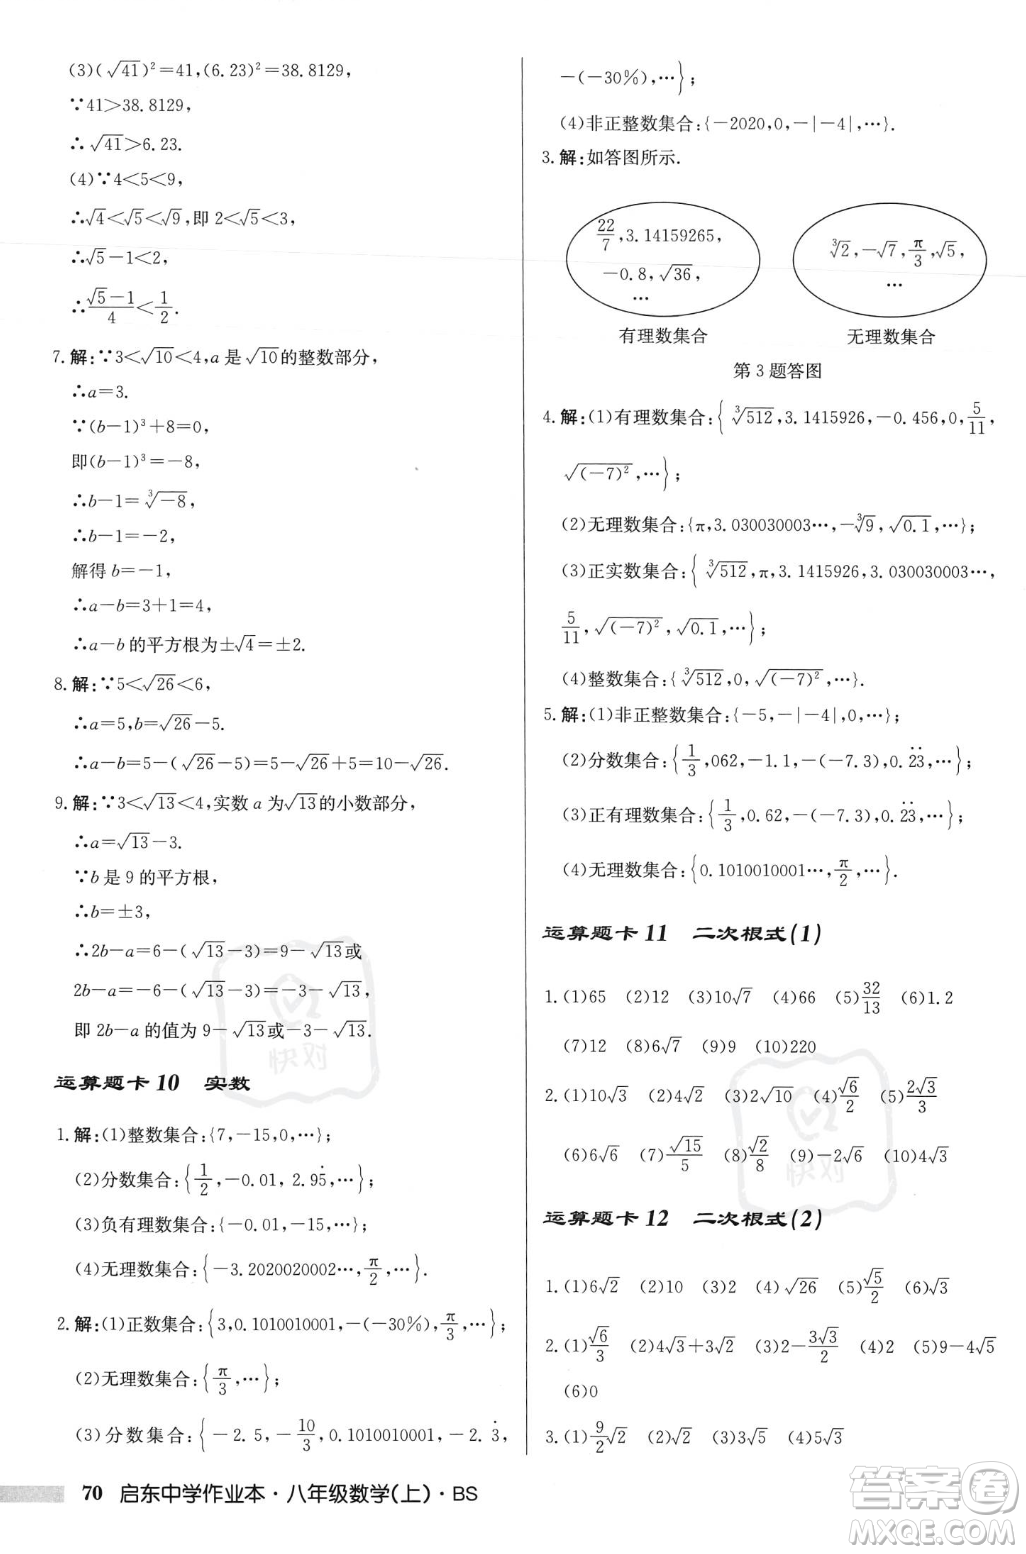 (3)(√41)²=41,(6.23)²=38.8129,
∵41>38.8129,
∴√41>6.23.
(4)∵4<5<9,
∴√4<√5<√9,即 2<√5<3,
∴√5-1<2,
∴(√5-1)/4<1/2.
7.解:∵3<√10<4,a 是√10的整数部分,
∴a=3.
∵(b-1)³+8=0,
即(b-1)³=-8,
∴b-1=∛-8,
∴b-1=-2,
解得 b=-1,
∴a-b=3+1=4,
∴a-b 的平方根为±√4=±2.
8.解:∵5<√26<6,
∴a=5,b=√26-5.
∴a-b=5-(√26-5)=5-√26+5=10-√26.
9.解:∵3<√13<4,实数 a 为√13的小数部分,
∴a=√13-3.
∵b 是 9 的平方根,
∴b=±3,
∴2b-a=6-(√13-3)=9-√13或
2b-a=-6-(√13-3)=-3-√13,
即 2b-a 的值为 9-√13或-3-√13.
运算题卡 10 实数
1.解:(1)整数集合:{7,-15,0,…};
(2)分数集合:{1/2,-0.01, 2.95̇,…};
(3)负有理数集合:{-0.01,-15,…};
(4)无理数集合:{-3.2020020002…,π/2,…}.
2.解:(1)正数集合:{3,0.1010010001,-(-30%),π/3,…};
(2)无理数集合:{π/3,…};
(3)分数集合:{-2.5,-10/3,0.1010010001,-2.3̇,
-(-30%),…};
(4)非正整数集合:{-2020,0,-|-4|,…}.
3.解:如答图所示.
22/7,3.14159265,
-0.8,√36,
…
有理数集合
∛2,-√7,π/3,√5,
…
无理数集合
第 3 题答图
4.解:(1)有理数集合:{∛512,3.1415926,-0.456,0,5/11,
√(-7)²,…};
(2)无理数集合:{π,3.030030003…,-∛9,√0.1,…};
(3)正实数集合:{∛512,π,3.1415926,3.030030003…,
5/11,√(-7)²,√0.1,…};
(4)整数集合:{∛512,0,√(-7)²,…}.
5.解:(1)非正整数集合:{-5,-|-4|,0,…};
(2)分数集合:{1/3,062,-1.1,-(-7.3),0.2̇3̇,…};
(3)正有理数集合:{1/3,0.62,-(-7.3),0.2̇3̇,…};
(4)无理数集合:{0.1010010001…,π/2,…}.
运算题卡 11 二次根式(1)
1.(1)65 (2)12 (3)10√7 (4)66 (5)32/13 (6)1.2
(7)12 (8)6√7 (9)9 (10)220
2.(1)10√3 (2)10√5 (3)2√10 (4)√6/2 (5)2√3/3
(6)6√5 (7)√15/5 (8)√2/8 (9)-2√6 (10)4√3
运算题卡 12 二次根式(2)
1.(1)6√2 (2)10 (3)2 (4)√26 (5)√5/2 (6)√3
2.(1)√6/3 (2)4√3+3√2 (3)2-3√3/2 (4)2 (5)9-4√5
(6)0
3.(1)9/2√2 (2)4
70 启东中学作业本·八年级数学(上)·BS
快对
快对
答案圈
MXQE.COM